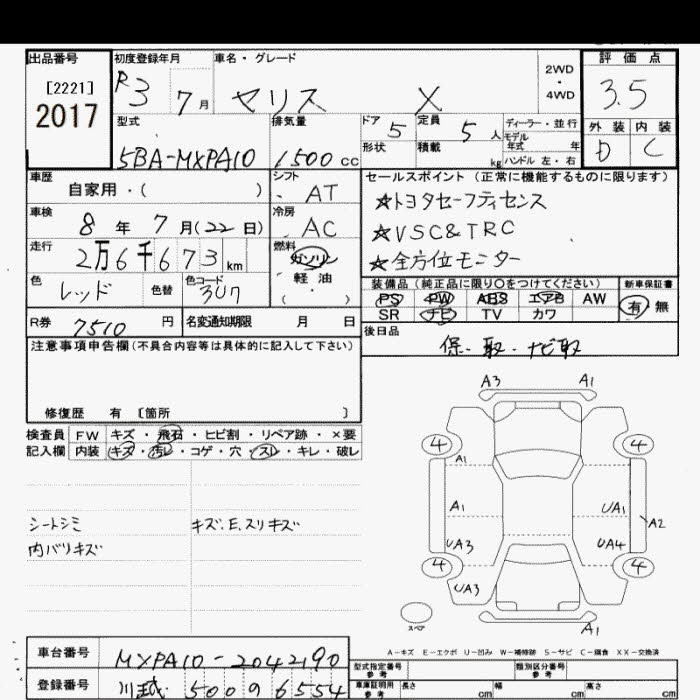 出品番号 初度登録年月 車名・グレード 2WD ・ 4WD 評価点
[2221] 2017 R3 7月 ヤリス X 3.5
型式 排気量 ドア 5 定員 5人 ディーラー・並行 外装 内装
5BA-MXPA10 1500cc 形状 積載 kg モデル年式 年 ハンドル 左・右 D C
車歴 シフト セールスポイント (正常に機能するものに限ります)
自家用・( ) AT ☆トヨタセーフティセンス
車検 冷房 ☆VSC&TRC
8年 7月(22日) AC ☆全方位モニター
走行 燃料
2万6千673km ガソリン
色 色替 色コード 軽油 装備品 (純正品に限り○をつけてください) 新車保証書
レッド 3U7 (・) PS PW ABS エアB AW 有 無
SR ナビ TV カワ
R券 7510円 名変通知期限 月 日 後日品
注意事項申告欄(不具合内容等は具体的に記入して下さい) 保・取・ナビ取
修復歴 有 〔箇所 〕
検査員 FW キズ・飛石・ヒビ割・リペア跡・×要
記入欄 内装 キズ・汚レ・コゲ・穴・スレ・キレ・破レ
シートシミ キズ.E.スリキズ
内バリキズ
A3 A1
4 4
A1
A1 UA1 A2
UA3 UA4
4 4
UA3
A1
スペア
A-キズ E-エクボ U-凹み W-補修跡 S-サビ C-腐食 XX-交換済
車台番号 MXPA10-2042190 型式指定番号 参考 類別区分番号 参考
登録番号 川越 500 9 6554 車庫証明用 参考 長さ cm 幅 cm 高さ cm